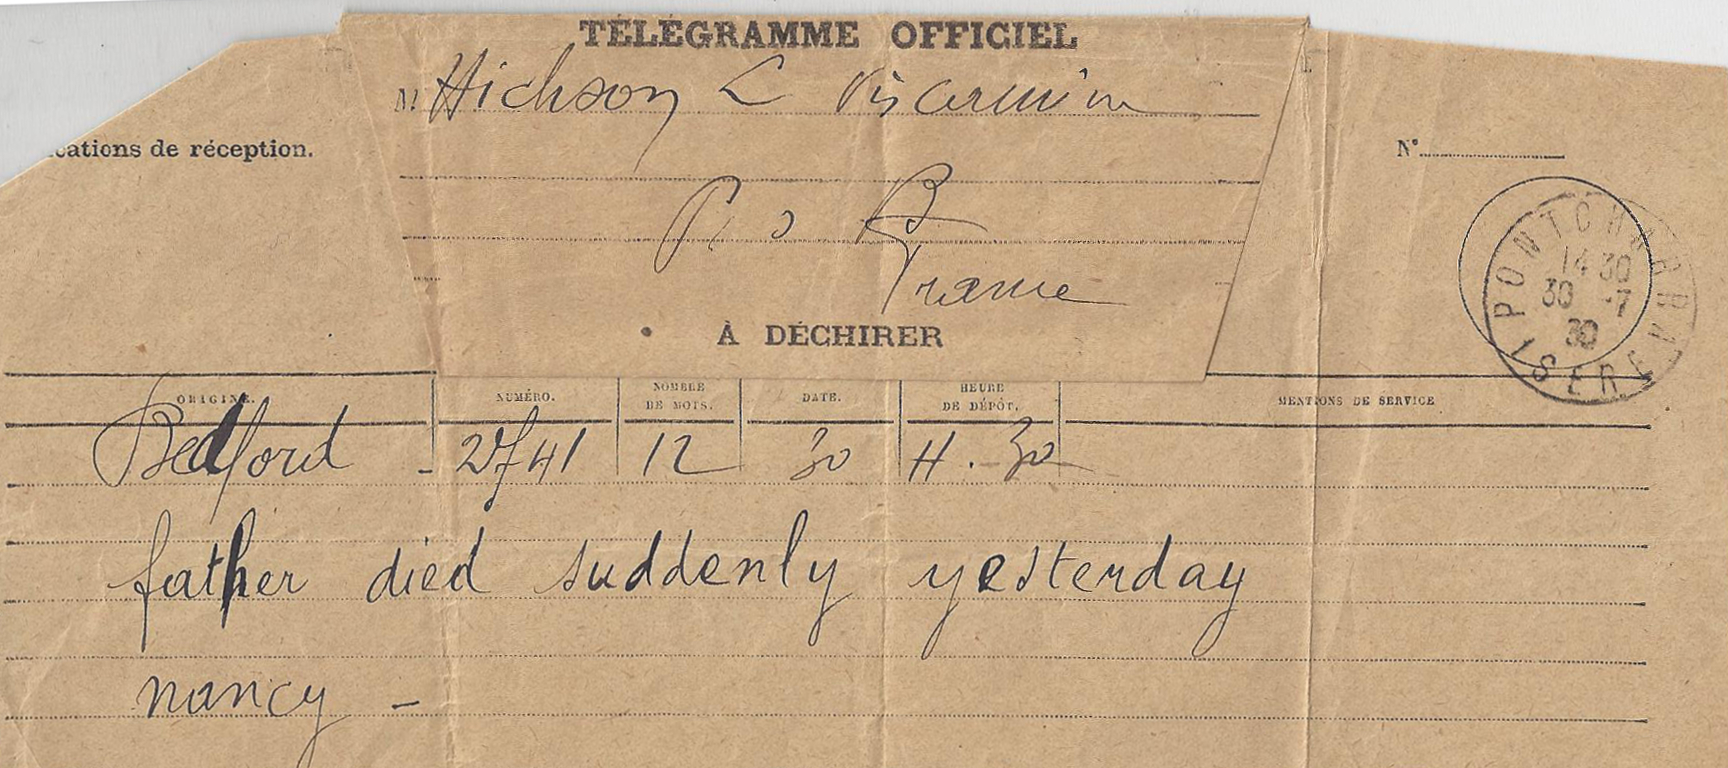 TÉLÉGRAMME OFFICIEL
M. Hickson L
cations de réception.
N°
P R
France
À DÉCHIRER
PONTCHARRA
14 30
30 -7
30
ISERE
ORIGINE. NUMÉRO. NOMBRE DE MOTS. DATE. HEURE DE DÉPÔT. MENTIONS DE SERVICE
Bedford - 2741 12 30 H. 30
father died suddenly yesterday
nancy -